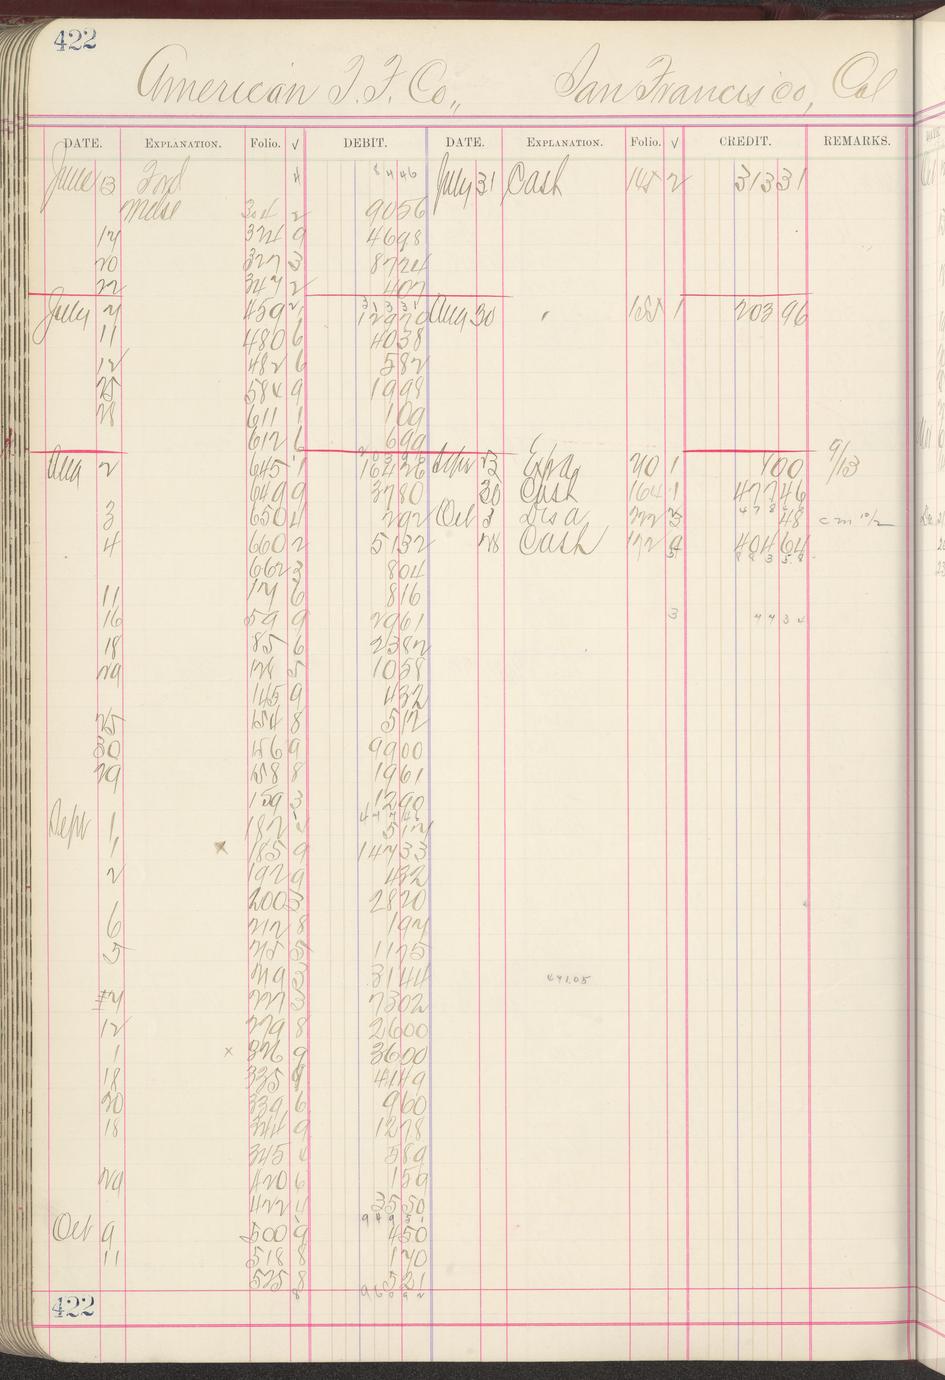 422
American T. F. Co., San Francisco, Cal
DATE. EXPLANATION. Folio. √ DEBIT. DATE. EXPLANATION. Folio. √ CREDIT. REMARKS.
June 13 Ford 4 84 46 July 31 Cash 145 2 313 31
Mdse 304 2 90 56
17 324 9 46 98
20 327 3 87 24
22 347 2 4 07
July 7 459 2 313 31 129 70 Aug 30 " 155 1 203 96
11 480 6 40 38
12 482 6 5 82
25 584 9 19 98
28 611 1 1 09
612 6 6 99
Aug 2 645 1 164 26 Sept 23 Exps 20 1 7 00 9/13
649 9 37 80 30 Cash 164 1 477 46
3 650 4 2 92 Oct 3 Disa 222 3 48 cm 10/2
4 660 2 51 32 28 Cash 172 9 404 64
662 3 8 04 883 58
11 17 6 8 16
16 59 9 29 61 3 77 34
18 85 6 23 82
29 128 5 10 58
145 9 4 32
25 154 8 5 12
30 156 9 99 00
29 158 8 19 61
159 3 12 90
477 46
Sept 1 182 4 5 17
1 x 185 9 147 33
2 192 9 4 32
200 3 28 20
6 212 8 1 97
5 215 5 11 25
219 3 31 44 491.05
7 227 3 73 02
12 279 8 26 00
1 x 326 9 36 00
18 335 9 41 49
20 339 6 9 60
18 344 9 12 78
345 4 5 89
29 420 6 1 59
422 4 35 50
949 51
Oct 9 500 9 4 50
11 518 8 1 70
525 8 5 21
8 960 92
422